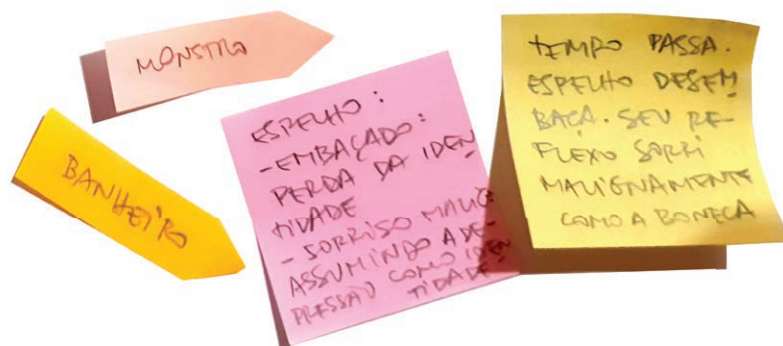 MONSTRO
BANHEIRO
ESPELHO:
- EMBAÇADO:
PERDA DA IDEN
TIDADE
- SORRISO MALIG
ASSUMINDO A DE-
PRESSÃO COMO IDEN
TIDADE
TEMPO PASSA.
ESPELHO DESEM
BAÇA. SEU RE-
FLEXO SORRI
MALIGNAMENTE
COMO A BONECA